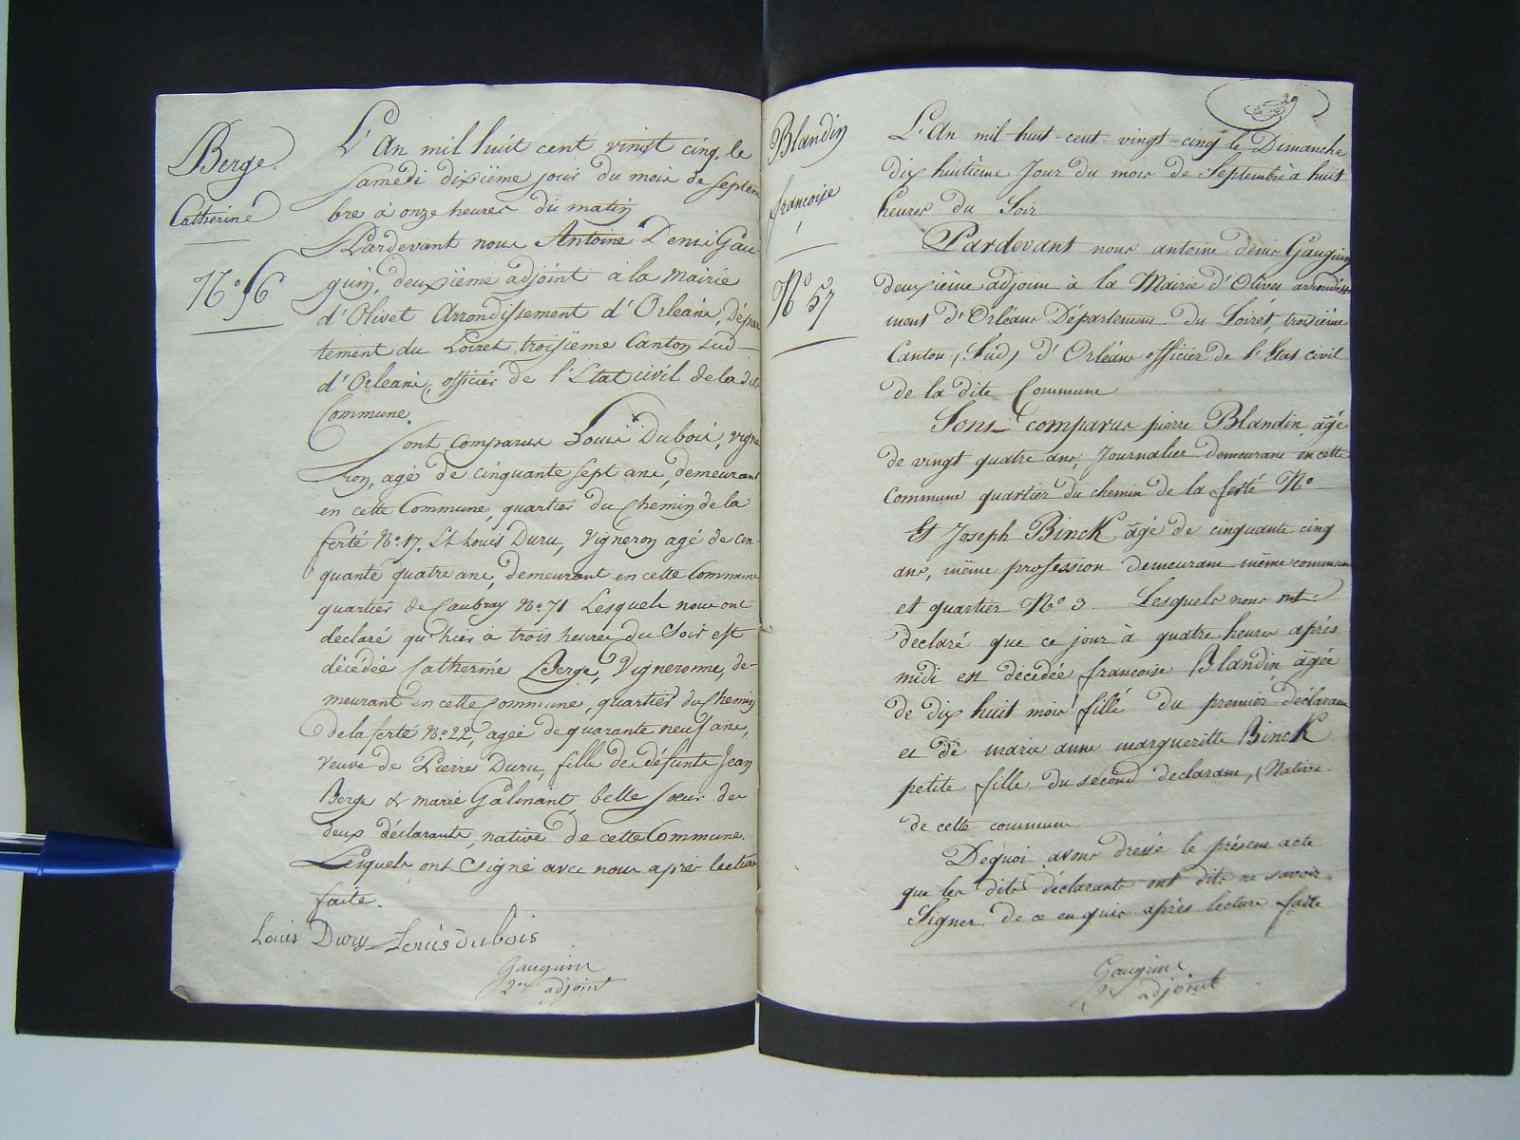 Berge
Catherine
N.o 56
L'An mil huit cent vingt cinq, le
samedi dixième jour du mois de septem
bre à onze heures du matin
Pardevant nous Antoine Denis Gau
guin, deuxième adjoint à la Mairie
d'Olivet Arrondissement d'Orléans, Dépar
tement du Loiret troisième Canton sud
d'Orléans, officier de l'Etat civil de la dite
Commune.
sont comparus Louis Dubois, vigne
ron, agé de cinquante sept ans, demeurant
en cette Commune, quartier du Chemin de la
ferté No. 17. Et Louis Duru, Vigneron agé de cin
quante quatre ans, demeurant en cette Commune
quartier de Caubray No. 71 Lesquels nous ont
declaré qu'hier à trois heures du Soir est
décédée Catherine Berge, Vigneronne, de-
meurant en cette Commune, quartier du Chemin
de la ferté No. 22, agée de quarante neuf ans,
veuve de Pierre Duru, fille de défunts Jean
Berge & marie Galinant, belle sœur des
deux déclarants, native de cette Commune.
Lesquels ont signé avec nous après lecture
faite.
Louis Duru Louis dubois
Gauguin
2e adjoint
Blandin
françoise
No 57
L'An mil-huit-cent-vingt-cinq le Dimanche
dix huitième Jour du mois de Septembre à huit
heures du Soir
Pardevant nous antoine denis Gauguin
deuxième adjoint à la Mairie d'Olivet arrondisse
ment d'Orléans Département du Loiret, troisième
Canton (Sud) d'Orléans officier de l'Etat civil
de la dite Commune
Sont comparus pierre Blandin, âgé
de vingt quatre ans, Journalier demeurant en cette
Commune quartier du chemin de la ferté No
Et Joseph Binck âgé de cinquante cinq
ans, même profession demeurant même commune
et quartier No 3 Lesquels nous ont
declaré que ce jour à quatre heures après
midi est décédée françoise Blandin, âgée
de dix huit mois fille du premier déclarant
et de marie anne margueritte Binck
petite fille du second declarant, Native
de cette commune
De quoi avons dressé le présent acte
que les dits déclarants ont dits ne savoir
Signer de ce enquis après lecture faite
Gauguin
2e adjoint